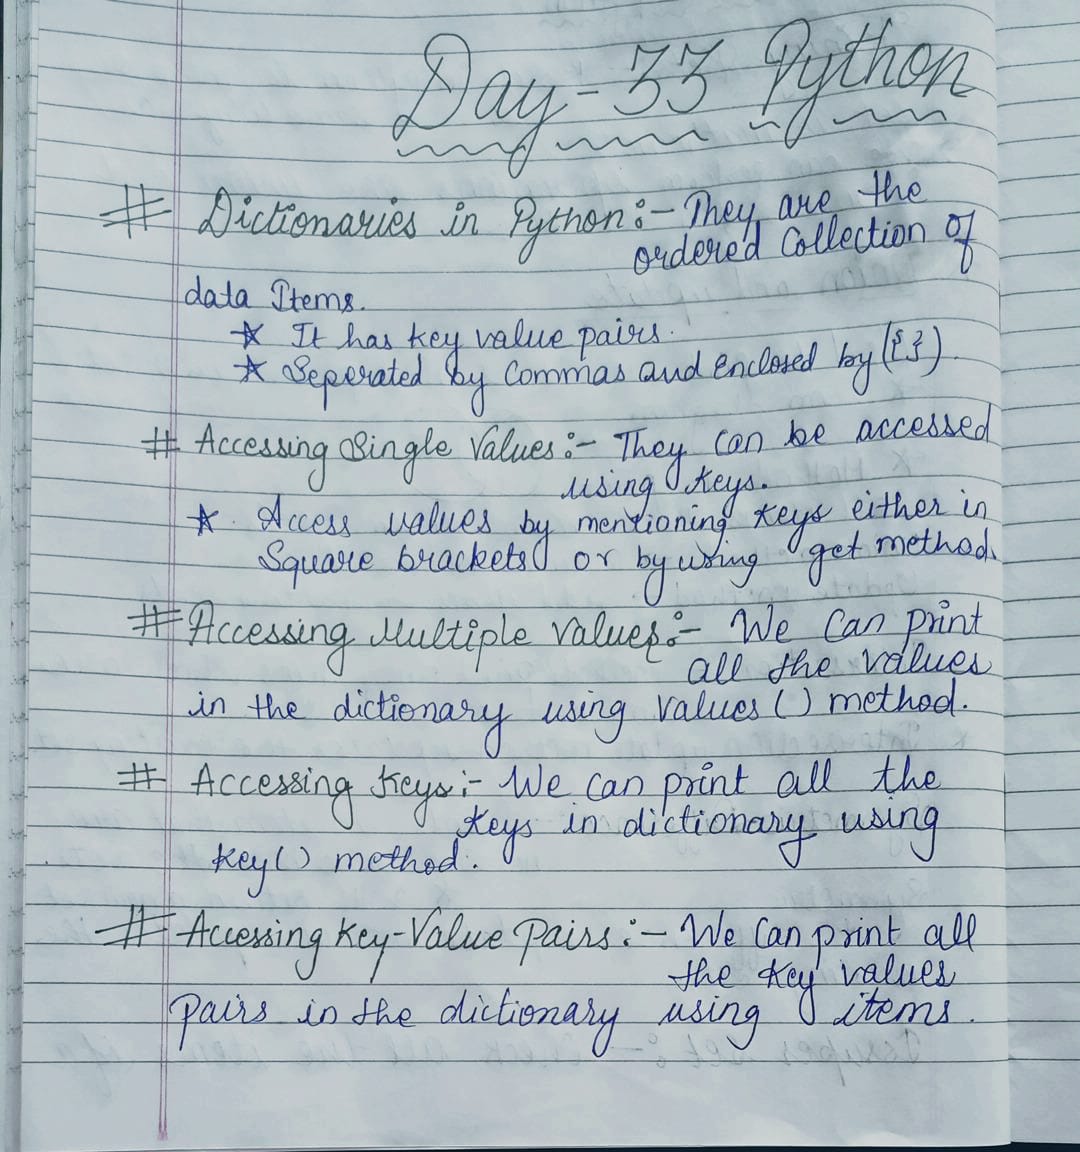 Day-33 Python
# Dictionaries in Python:- They are the
ordered Collection of
data Items.
* It has key value pairs.
* Seperated by Commas and enclosed by ({}).
# Accessing Single Values:- They can be accessed
using keys.
* Access values by mentioning keys either in
Square brackets or by using get method.
# Accessing Multiple Values:- We Can print
all the values
in the dictionary using values() method.
# Accessing Keys:- We Can print all the
keys in dictionary using
key() method.
# Accessing Key-Value Pairs:- We Can print all
the key values
pairs in the dictionary using items.